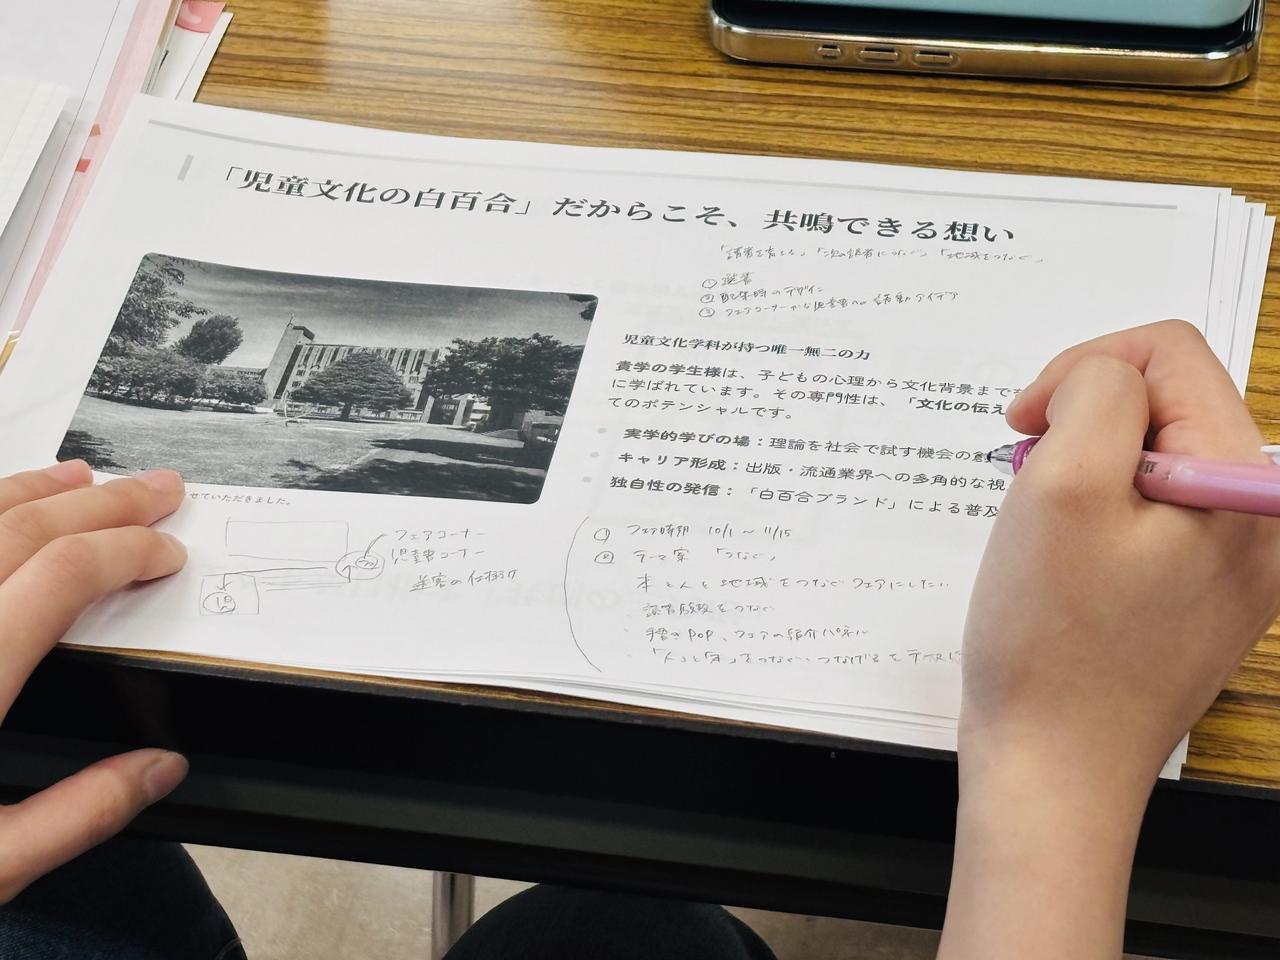 「児童文化の白百合」だからこそ、共鳴できる想い
「読書を育む」「次の読者につなぐ」「地域をつなぐ」
① 選書
② 配架時のデザイン
③ フェアコーナーから児童書への誘動アイデア
児童文化学科が持つ唯一無二の力
貴学の学生様は、子どもの心理から文化背景まで
に学ばれています。その専門性は、「文化の伝え
てのポテンシャルです。
実学的学びの場：理論を社会で試す機会の創
キャリア形成：出版・流通業界への多角的な視
独自性の発信：「白百合ブランド」による普及
せていただきました。
フェアコーナー
児童書コーナー
送客の仕掛け
① フェア時期 10/1 ～ 11/15
② テーマ案 「つなぐ」
本と人と地域をつなぐフェアにしたい
読書体験をつなぐ
手書きPOP、フェアの紹介パネル
「人」と「本」をつなぐ、つなげる